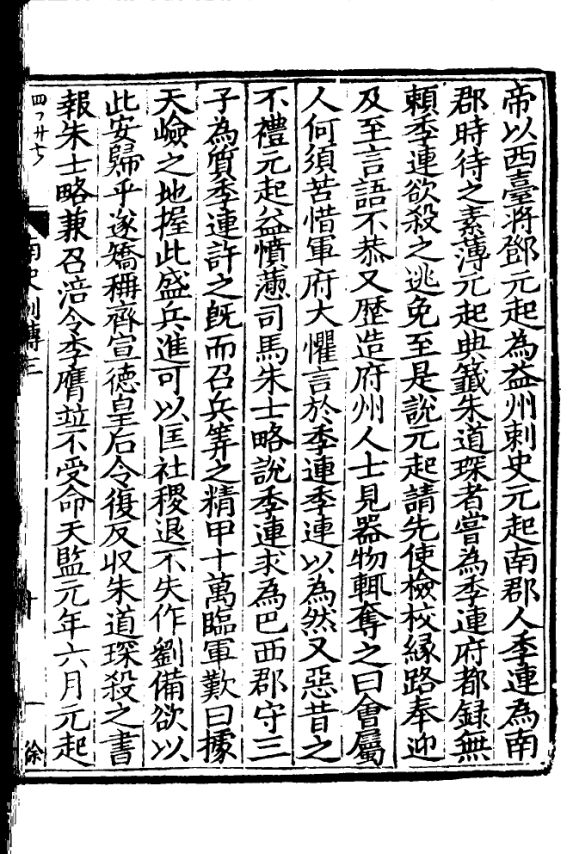 帝以西臺將鄧元起為益州刺史元起南郡人季連為南
郡時待之素薄元起典籤朱道琛者嘗為季連府都録無
頼季連欲殺之逃免至是說元起請先使檢校縁路奉迎
及至言語不恭又歷造府州人士見器物輒奪之曰會屬
人何須苦惜軍府大懼言於季連季連以為然又惡昔之
不禮元起益憤懣司馬朱士略說季連求為巴西郡守三
子為質季連許之既而召兵筭之精甲十萬臨軍歎曰據
天嶮之地握此盛兵進可以匡社稷退不失作劉備欲以
此安歸乎遂矯稱齊宣德皇后令復反収朱道琛殺之書
報朱士略兼召涪令李膺竝不受命天監元年六月元起
南史列傳三
十
徐